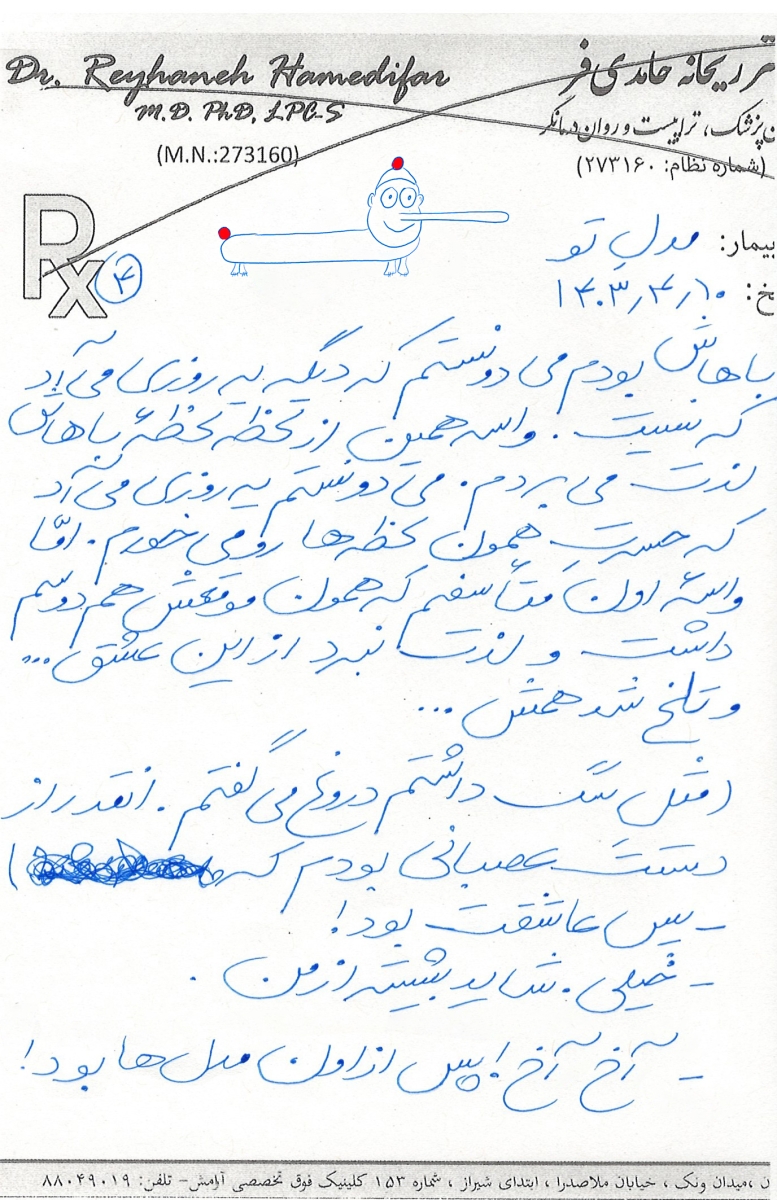 Dr. Reyhaneh Hamedifar
M.D. PhD, LPC-S
(M.N.:273160)
تر ریحانه حامدی فر
ن‌پزشک، تراپیست و روان درمانگر
(شماره نظام: ۲۷۳۱۶۰)
Rx
۴
بیمار: مدلِ تو
خ: ۱۴۰۳٫۴٫۱۰
باهاش بودم می دونستم که دیگه یه روزی می آد
که نسیت. واسه همین از لحظه لحظهٔ باهاش
لذت می بردم. می دونستم یه روزی می آد
که حسرتِ همون لحظه ها رو می خورم. امّا
واسهٔ اون متأسفم که همون موقعش هم دوسم
داشت و لذت نبرد از این عشق...
و تلخ شد همش...
(مثل سگ داشتم دروغ می گفتم. انقدر از
دستت عصبانی بودم که )
- پس عاشقت بود!
- خیلی. شاید بیشتر از من.
- آخ آخ! پس از اون مدل ها بود!
ن ،میدان ونک ، خیابان ملاصدرا ، ابتدای شیراز ، شماره ۱۵۳ کلینیک فوق تخصصی آرامش- تلفن: ۸۸۰۴۹۰۱۹